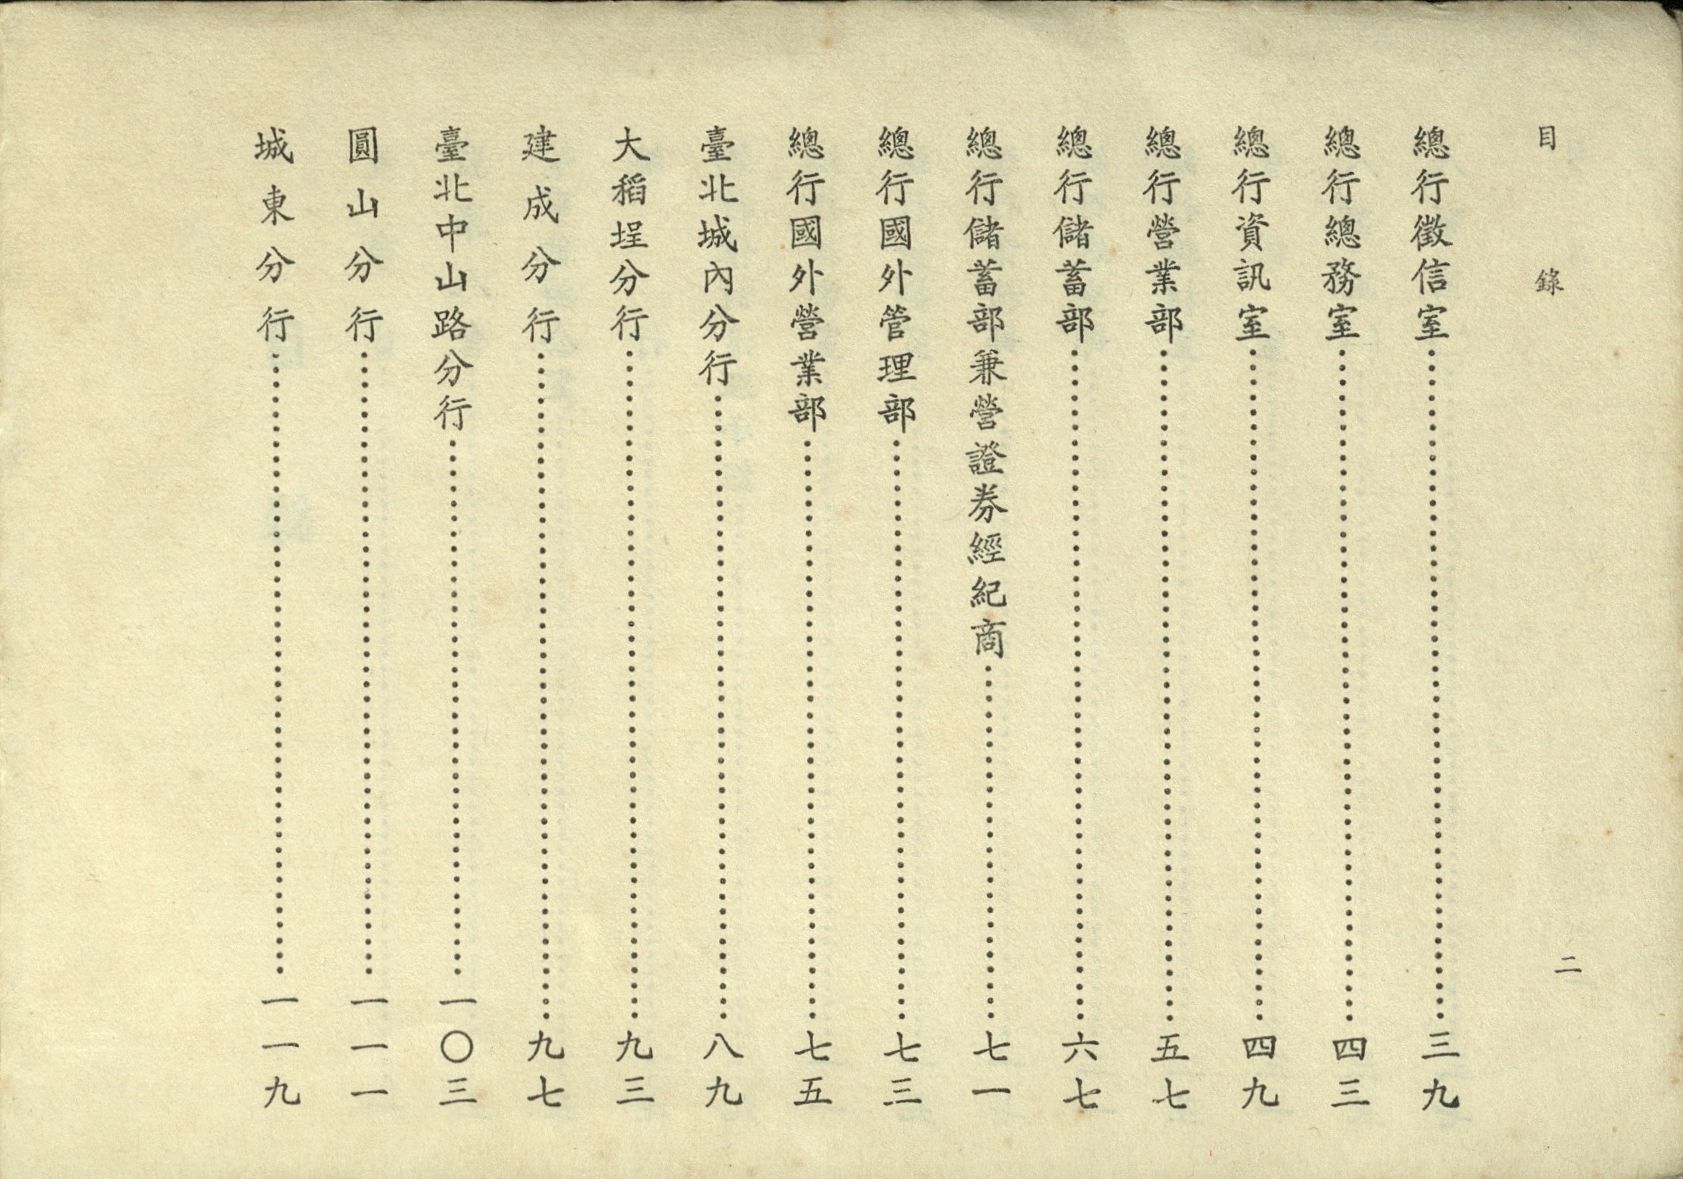 目錄
二
總行徵信室……三九
總行總務室……四三
總行資訊室……四九
總行營業部……五七
總行儲蓄部……六七
總行儲蓄部兼營證券經紀商……七一
總行國外管理部……七三
總行國外營業部……七五
臺北城內分行……八九
大稻埕分行……九三
建成分行……九七
臺北中山路分行……一〇三
圓山分行……一一一
城東分行……一一九